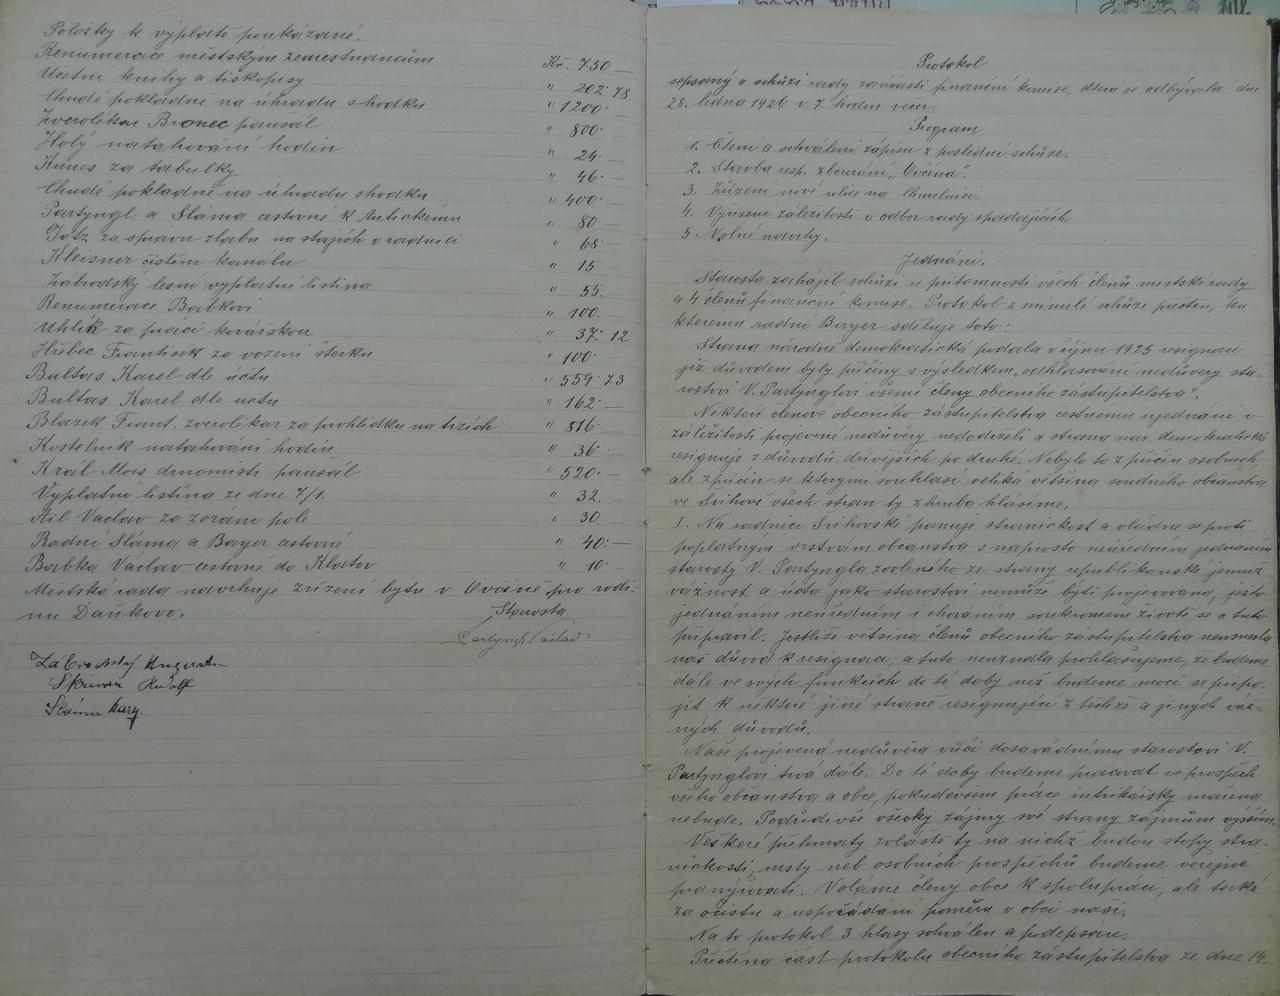 Položky k výplatě poukázané.
Renumerace městským zemestnancům Kč. 750 —
Účetní knihy a tiskopisy " 202·78
Chudé pokladně na úhradu shodku " 1200·—
Zvěrolékař Bronec pausál " 800·—
Holý natahování hodin " 24·—
Kuneš za tabulky " 46·—
Chudé pokladně na úhradu shodku " 400·—
Partyngl a Sláma cestovné k " 80 —
za správu žlabu na stájích v radnici " 68·—
Kleisner čistění kanálu " 15 —
Zábrodský lesní výplatní listina " 55.—
Renumerace Babkovi " 100.—
Uhlík za práci kovářskou " 37·12
Hřebec František za vožení štěrku " 100·—
Bultas Karel dle účtu " 559·73
Bultas Karel dle uctu " 162·—
Blazek Frant. zvěrolékař za prohlídku na trzích " 816·—
Kostelník natahování hodin " 36·—
Král Alois pausál " 520·—
Vyplatní listina ze dne 7/1. " 32.—
Kil Václav za zorání pole " 30.—
Radní Sláma a Bayer cestovné " 40·—
Babka Václav cestovné do Klatov " 10·—
Městská rada navrhuje zřízení bytu v Ovčíně pro rodi-
nu Daňkovo.
Starosta
Partyngl Václav
Zábrodský
Rudolf
Sláma Karel
Protokol
sepsaný o schůzi rady zaúčasti finanční komise, ktera se odbývala dne
28. ledna 1926 v 7 hodin večer.
Program
1. Čtení a schválení zápisu z poslední schůze.
2. Stavba resp. zbourání „Ovčína".
3. Zřízení nové ulice na Chmelnici.
4. Vyřízení záležitostí v odbor rady spadajících
5. Volné návrhy.
Jednání.
Starosta zahájil schůzi u přítomnosti všech členů městské rady
a 4 členů finanční komise. Protokol z minulé schůze přečten, ku
kterému radní Bayer sděluje toto:
Strana národně demokratická podala v říjnu 1925 resignaci
jíž důvodem byly příčiny s výsledkem „odhlasování nedůvěry sta-
rostovi V. Partynglovi všemi členy obecního zástupitelstva".
Někteří členové obecního zástupitelstva čestnému ujednání v
záležitosti projevené nedůvěry nedodrželi a strana nár. demokratická
resignuje z důvodů dřívějších po druhé. Nebylo to z příčin osobních,
ale z příčin se kterými souhlasí veliká většina soudného občanstva
ve Švihově všech stran ty zhruba hlásíme.
I. Na radnici Švihovské panuje stranickost a vládne se proti
poplatným vrstvám občanstva s naprosto neúředním jednáním
starosty V. Partyngla zvoleného ze strany republikánské jemuž
vážnost a úcta jako starostovi nemůže býti projevována, ješto
jednáním neúředním i chováním soukromém životě se o tuto
připravil. Jestliže většina členů obecního zástupitelstva neusnesla
náš důvod k resignaci, a tuto neuznala prohlašujeme, že budeme
dále ve svých funkcích do té doby než budeme moci se připo-
jit k některé jiné straně resignující z těchže a jiných váž-
ných důvodů.
Naše projevená nedůvěra vůči dosavádnímu starostovi V.
Partynglovi trvá dále. Do té doby budeme pracovat ve prospěch
všeho občanstva a obce, pokudovšem práce intrikářsky mařena
nebude. Podřídivše všecky zájmy své strany zájmům vyšším.
Veškeré přehmaty zvláště ty na nichž budou stopy stra-
nickosti, msty neb osobních prospěchů budeme veřejně
pranýřovati. Voláme členy obce k spolupráci, ale také
za očistu a uspořádání poměru v obci naší.
Na to protokol 3 hlasy schválen a podepsán.
Přečtena část protokolu obecního zástupitelstva ze dne 14.